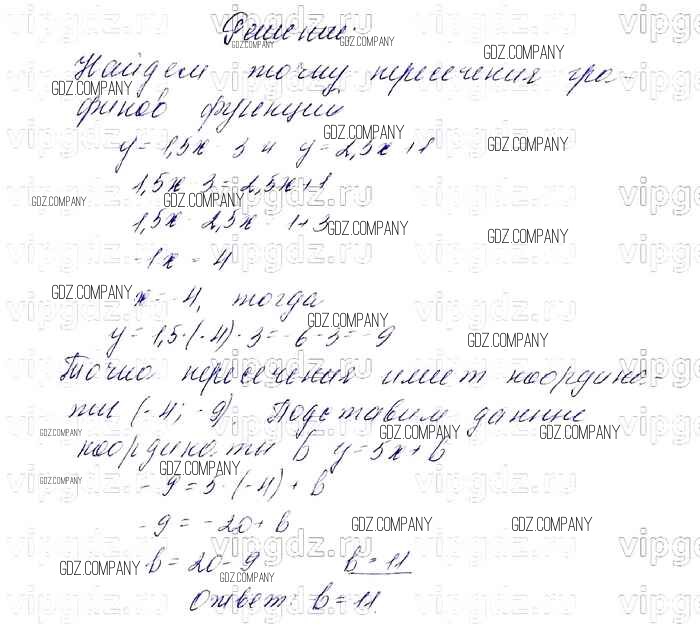 Решение:
Найдем точку пересечения гра-
фиков функций
y = 1,5x - 3 и y = 2,5x + 1
1,5x - 3 = 2,5x + 1
1,5x - 2,5x = 1 + 3
-1x = 4
x = -4, тогда
y = 1,5·(-4) - 3 = -6 - 3 = -9
Точка пересечения имеет координа-
ты (-4; -9). Подставим данные
координаты в y = 5x + b
-9 = 5·(-4) + b
-9 = -20 + b
b = 20 - 9    b = 11
Ответ: b = 11.